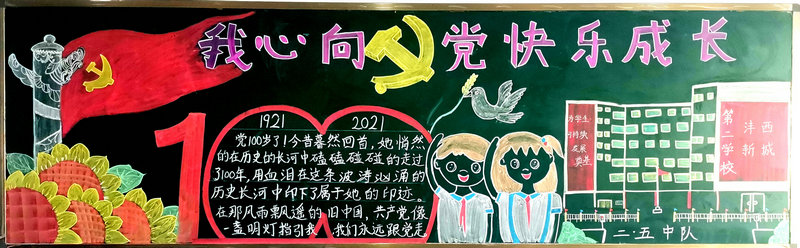 我心向党快乐成长
1921 2021
党100岁了!今昔暮然回首,她悄然
的在历史的长河中磕磕碰碰的走过
了100年,用血泪在这条波涛汹涌的
历史长河中印下了属于她的印迹。
在那风雨飘遥的旧中国,共产党像
一盏明灯指引我 我们永远跟党走
100
为学生
发展
奠基
第二学校
沣西
新城
二·五中队